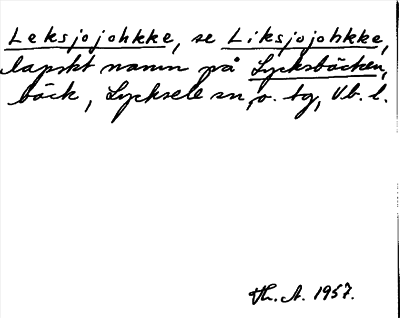 Leksjojohkke, se Liksjojohkke,
lapskt namn på Lycksbäcken,
bäck, Lycksele sn, o. tg, Vb. l.
Th. A. 1957.